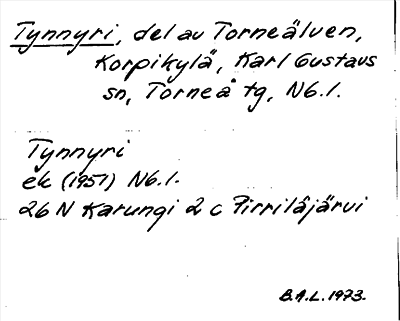 Tynnyri, del av Torneälven,
Korpikylä, Karl Gustavs
sn, Torneå tg, Nb.l.
Tynnyri
ek (1951) Nb.l.
26 N Karungi 2 c Pirrilâjärvi
B.A.L. 1973.